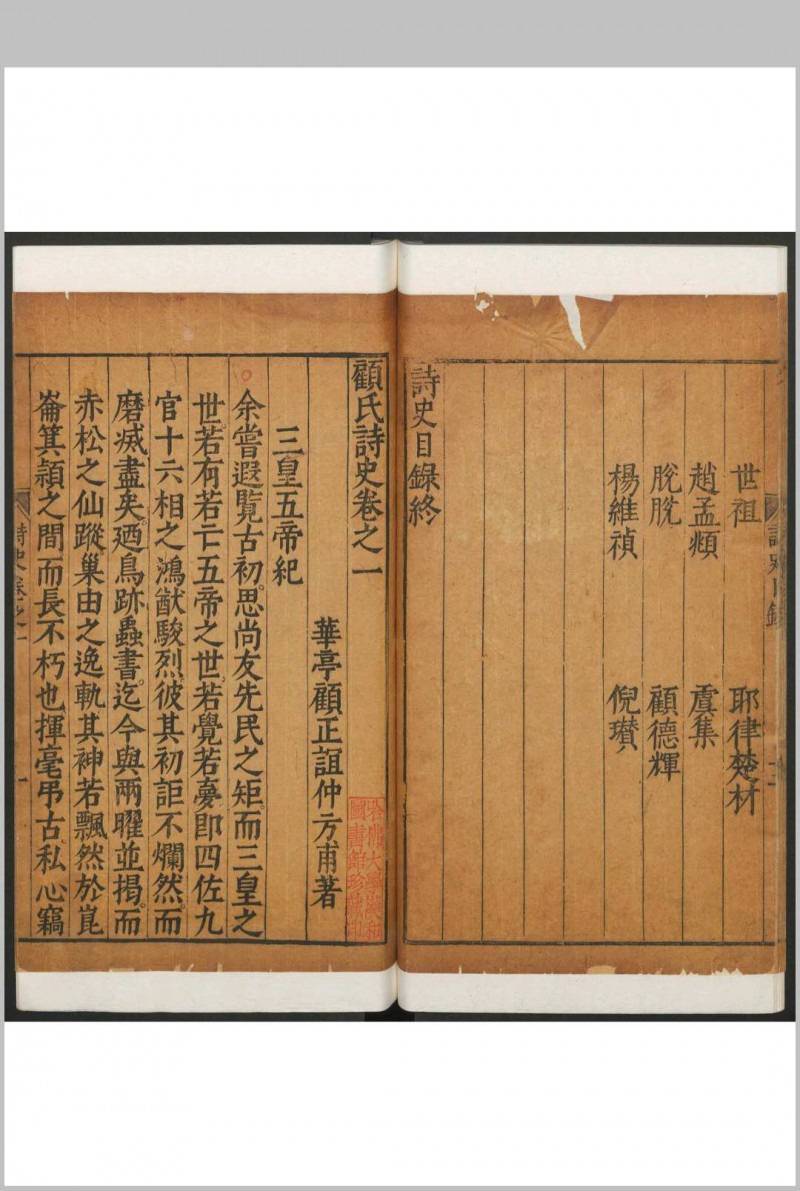 世祖　耶律楚材
趙孟頫　虞集
脫脫　顧德輝
楊維禎　倪瓚
詩史目錄終
顧氏詩史卷之一
華亭顧正誼仲方甫著
三皇五帝紀
余嘗遐覽古初。思尚友先民之矩。而三皇之
世若有若亡五帝之世。若覺若夢即四佐九
官十六相之鴻猷駿烈。彼其初詎不爛然。而
磨滅盡矣。廼鳥跡蟲書。迄今與兩曜並揭。而
赤松之仙蹤。巢由之逸軌其神若飄然於崑
崙箕頴之間而長不朽也揮毫弔古。私心竊
詩史卷之一
一
詩史目錄